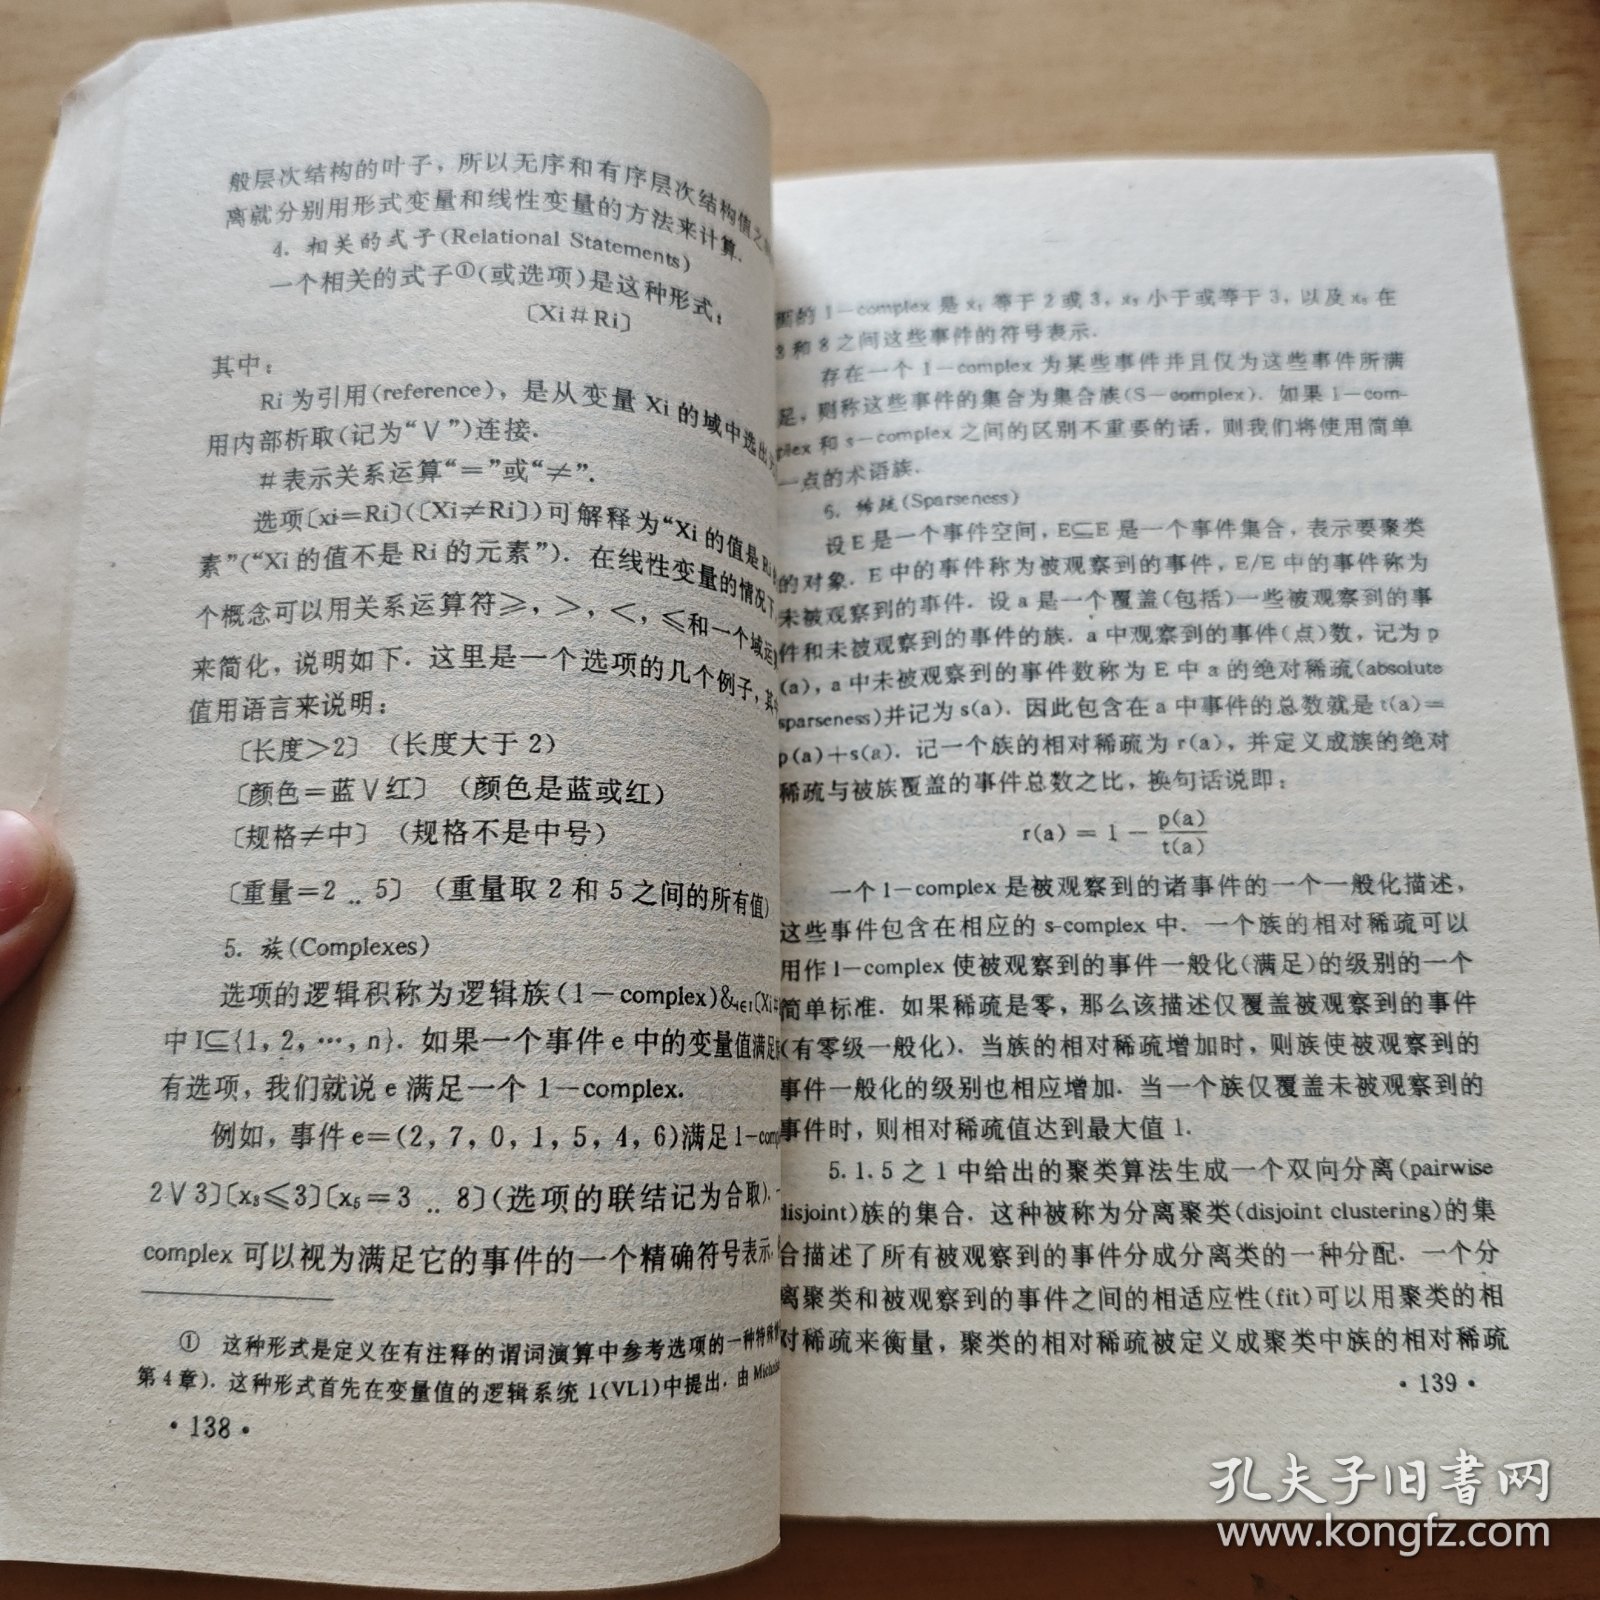 般层次结构的叶子，所以无序和有序层次结构值之
离就分别用形式变量和线性变量的方法来计算.
4. 相关的式子(Relational Statements)
一个相关的式子①(或选项)是这种形式：
〔Xi＃Ri〕
其中：
Ri 为引用(reference)，是从变量 Xi 的域中选出
用内部析取(记为“∨”)连接.
＃表示关系运算“＝”或“≠”.
选项〔xi＝Ri〕(〔Xi≠Ri〕)可解释为“Xi 的值是 Ri
素”(“Xi 的值不是 Ri 的元素”). 在线性变量的情况下
个概念可以用关系运算符≥，＞，＜，≤和一个域运
来简化，说明如下. 这里是一个选项的几个例子，其
值用语言来说明：
〔长度＞2〕 (长度大于 2)
〔颜色＝蓝∨红〕 (颜色是蓝或红)
〔规格≠中〕 (规格不是中号)
〔重量＝2 .. 5〕 (重量取 2 和 5 之间的所有值)
5. 族(Complexes)
选项的逻辑积称为逻辑族(1－complex)&ᵢ∈I〔Xi
中 I⊆{1, 2, …, n}. 如果一个事件 e 中的变量值满足
有选项，我们就说 e 满足一个 1－complex.
例如，事件 e＝(2, 7, 0, 1, 5, 4, 6)满足 1－comp
2∨3〕〔x₃≤3〕〔x₅＝3 .. 8〕(选项的联结记为合取).
complex 可以视为满足它的事件的一个精确符号表示.
① 这种形式是定义在有注释的谓词演算中参考选项的一种特殊
第 4 章). 这种形式首先在变量值的逻辑系统 1(VL1)中提出. 由 Micha
·138·
面的 1－complex 是 x₁ 等于 2 或 3，x₃ 小于或等于 3，以及 x₅ 在
3 和 8 之间这些事件的符号表示.
存在一个 1－complex 为某些事件并且仅为这些事件所满
足，则称这些事件的集合为集合族(S－complex). 如果 1－com-
plex 和 s－complex 之间的区别不重要的话，则我们将使用简单
一点的术语族.
6. 稀疏(Sparseness)
设 E 是一个事件空间，E⊆E 是一个事件集合，表示要聚类
的对象. E 中的事件称为被观察到的事件，E/E 中的事件称为
未被观察到的事件. 设 a 是一个覆盖(包括)一些被观察到的事
件和未被观察到的事件的族. a 中观察到的事件(点)数，记为 p
(a)，a 中未被观察到的事件数称为 E 中 a 的绝对稀疏(absolute
sparseness)并记为 s(a). 因此包含在 a 中事件的总数就是 t(a)＝
p(a)＋s(a). 记一个族的相对稀疏为 r(a)，并定义成族的绝对
稀疏与被族覆盖的事件总数之比，换句话说即：
r(a) = 1 − p(a)/t(a)
一个 1－complex 是被观察到的诸事件的一个一般化描述，
这些事件包含在相应的 s-complex 中. 一个族的相对稀疏可以
用作 1－complex 使被观察到的事件一般化(满足)的级别的一个
简单标准. 如果稀疏是零，那么该描述仅覆盖被观察到的事件
(有零级一般化). 当族的相对稀疏增加时，则族使被观察到的
事件一般化的级别也相应增加. 当一个族仅覆盖未被观察到的
事件时，则相对稀疏值达到最大值 1.
5.1.5 之 1 中给出的聚类算法生成一个双向分离(pairwise
disjoint)族的集合. 这种被称为分离聚类(disjoint clustering)的集
合描述了所有被观察到的事件分成分离类的一种分配. 一个分
离聚类和被观察到的事件之间的相适应性(fit)可以用聚类的相
对稀疏来衡量，聚类的相对稀疏被定义成聚类中族的相对稀疏
·139·
孔夫子旧书网
www.kongfz.com